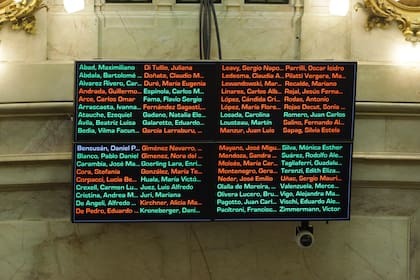 Abad, Maximiliano Di Tullio, Juliana Leavy, Sergio Napo.. Parrilli, Oscar Isidro
Abdala, Bartolomé ... Doñate, Claudio M... Ledesma, Claudia A... Pilatti Vergara, Ma...
Alvarez Rivero, Car... Duré, María Eugenia Lewandowski, Mar... Recalde, Mariano
Andrada, Guillermo... Espínola, Carlos M... Linares, Carlos Alb... Rojal, Jesús Ferna...
Arce, Carlos Omar Fama, Flavio Sergio López, Cándida Cri... Rodas, Antonio
Arrascaeta, Ivanna... Fernández Sagasti,... López, María Florenc... Rojas Decut, Sonia ...
Atauche, Ezequiel Gadano, Natalia Ele... Losada, Carolina Romero, Juan Carlos
Ávila, Beatriz Luisa Galaretto, Eduardo... Lousteau, Martín Salino, Fernando Al...
Bedia, Vilma Facun... García Larraburu, ... Manzur, Juan Luis Sapag, Silvia Estela
Bensusán, Daniel P... Giménez Navarro, ... Mayans, José Migu... Silva, Mónica Esther
Blanco, Pablo Daniel Gimenez, Nora del ... Mendoza, Sandra ... Suárez, Rodolfo Ale...
Carambia, José Ma... Goerling Lara, Enri... Moisés, María Car... Tagliaferri, Guadal...
Cora, Stefania González, María Te... Montenegro, Gera... Terenzi, Edith Eliza...
Corpacci, Lucía Be... Huala, María Victó... Neder, José Emilio Uñac, Sergio Mauri...
Crexell, Carmen Lu... Juez, Luis Alfredo Olalla de Moreira, ... Valenzuela, Merce...
Cristina, Andrea M... Juri, Mariana Olivera Lucero, Br... Vigo, Alejandra Ma...
De Angeli, Alfredo ... Kirchner, Alicia Ma... Pagotto, Juan Carl... Vischi, Eduardo Ale...
De Pedro, Eduardo ... Kroneberger, Dani... Paoltroni, Francisc... Zimmermann, Víctor